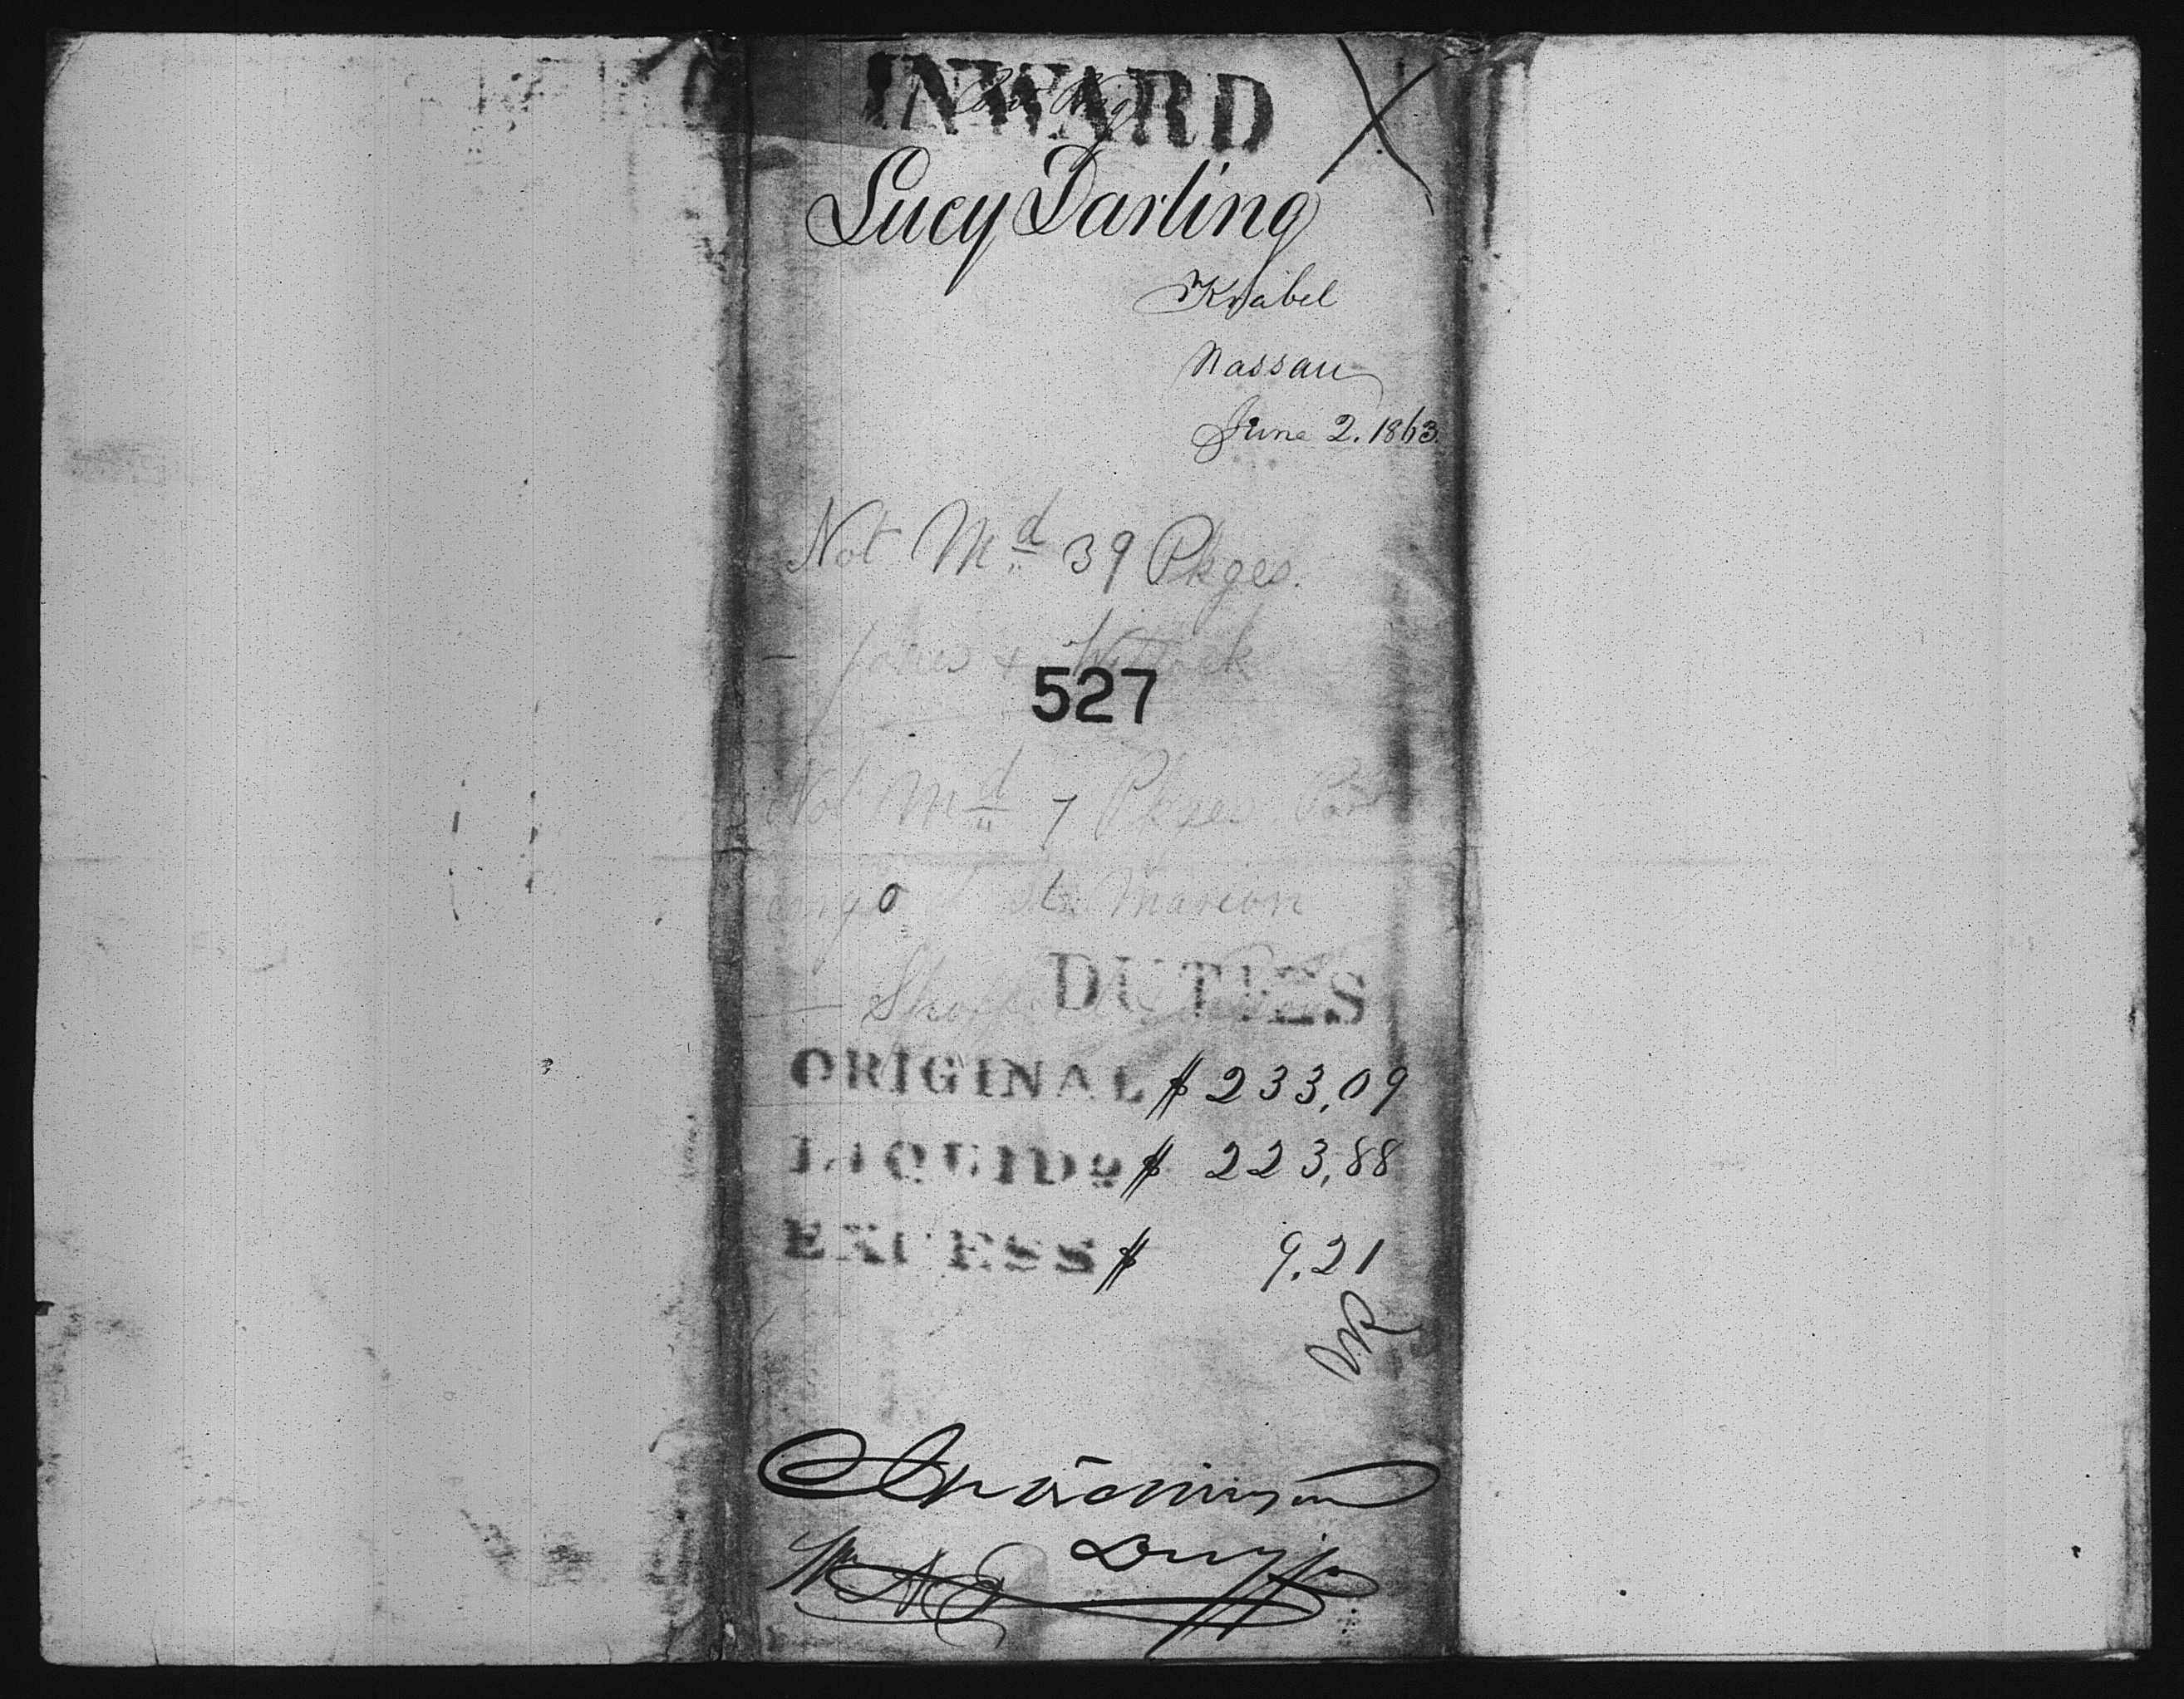 INWARD
Lucy Darling
Knabel
Nassau
June 2. 1863.
Not Md 39 Pkges.
- Jones &
527
Not Md 7 Pkges
cargo Str Marion
DUTIES
ORIGINAL $ 233,09
LIQUIDD $ 223,88
EXCESS $ 9.21